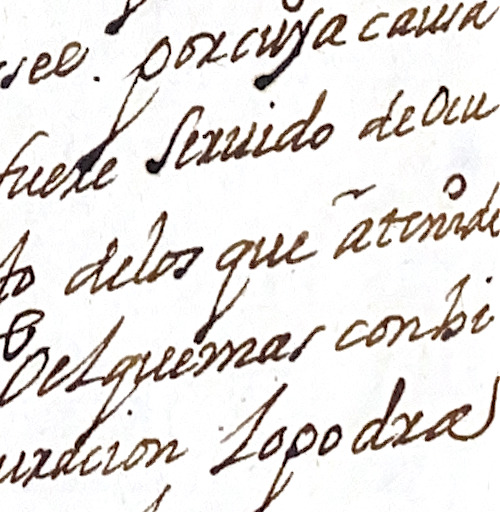 see. por cuya causa
fuere seruido de ocu
to delos que ã tenide
O el que mas conbi
uracion lo podra